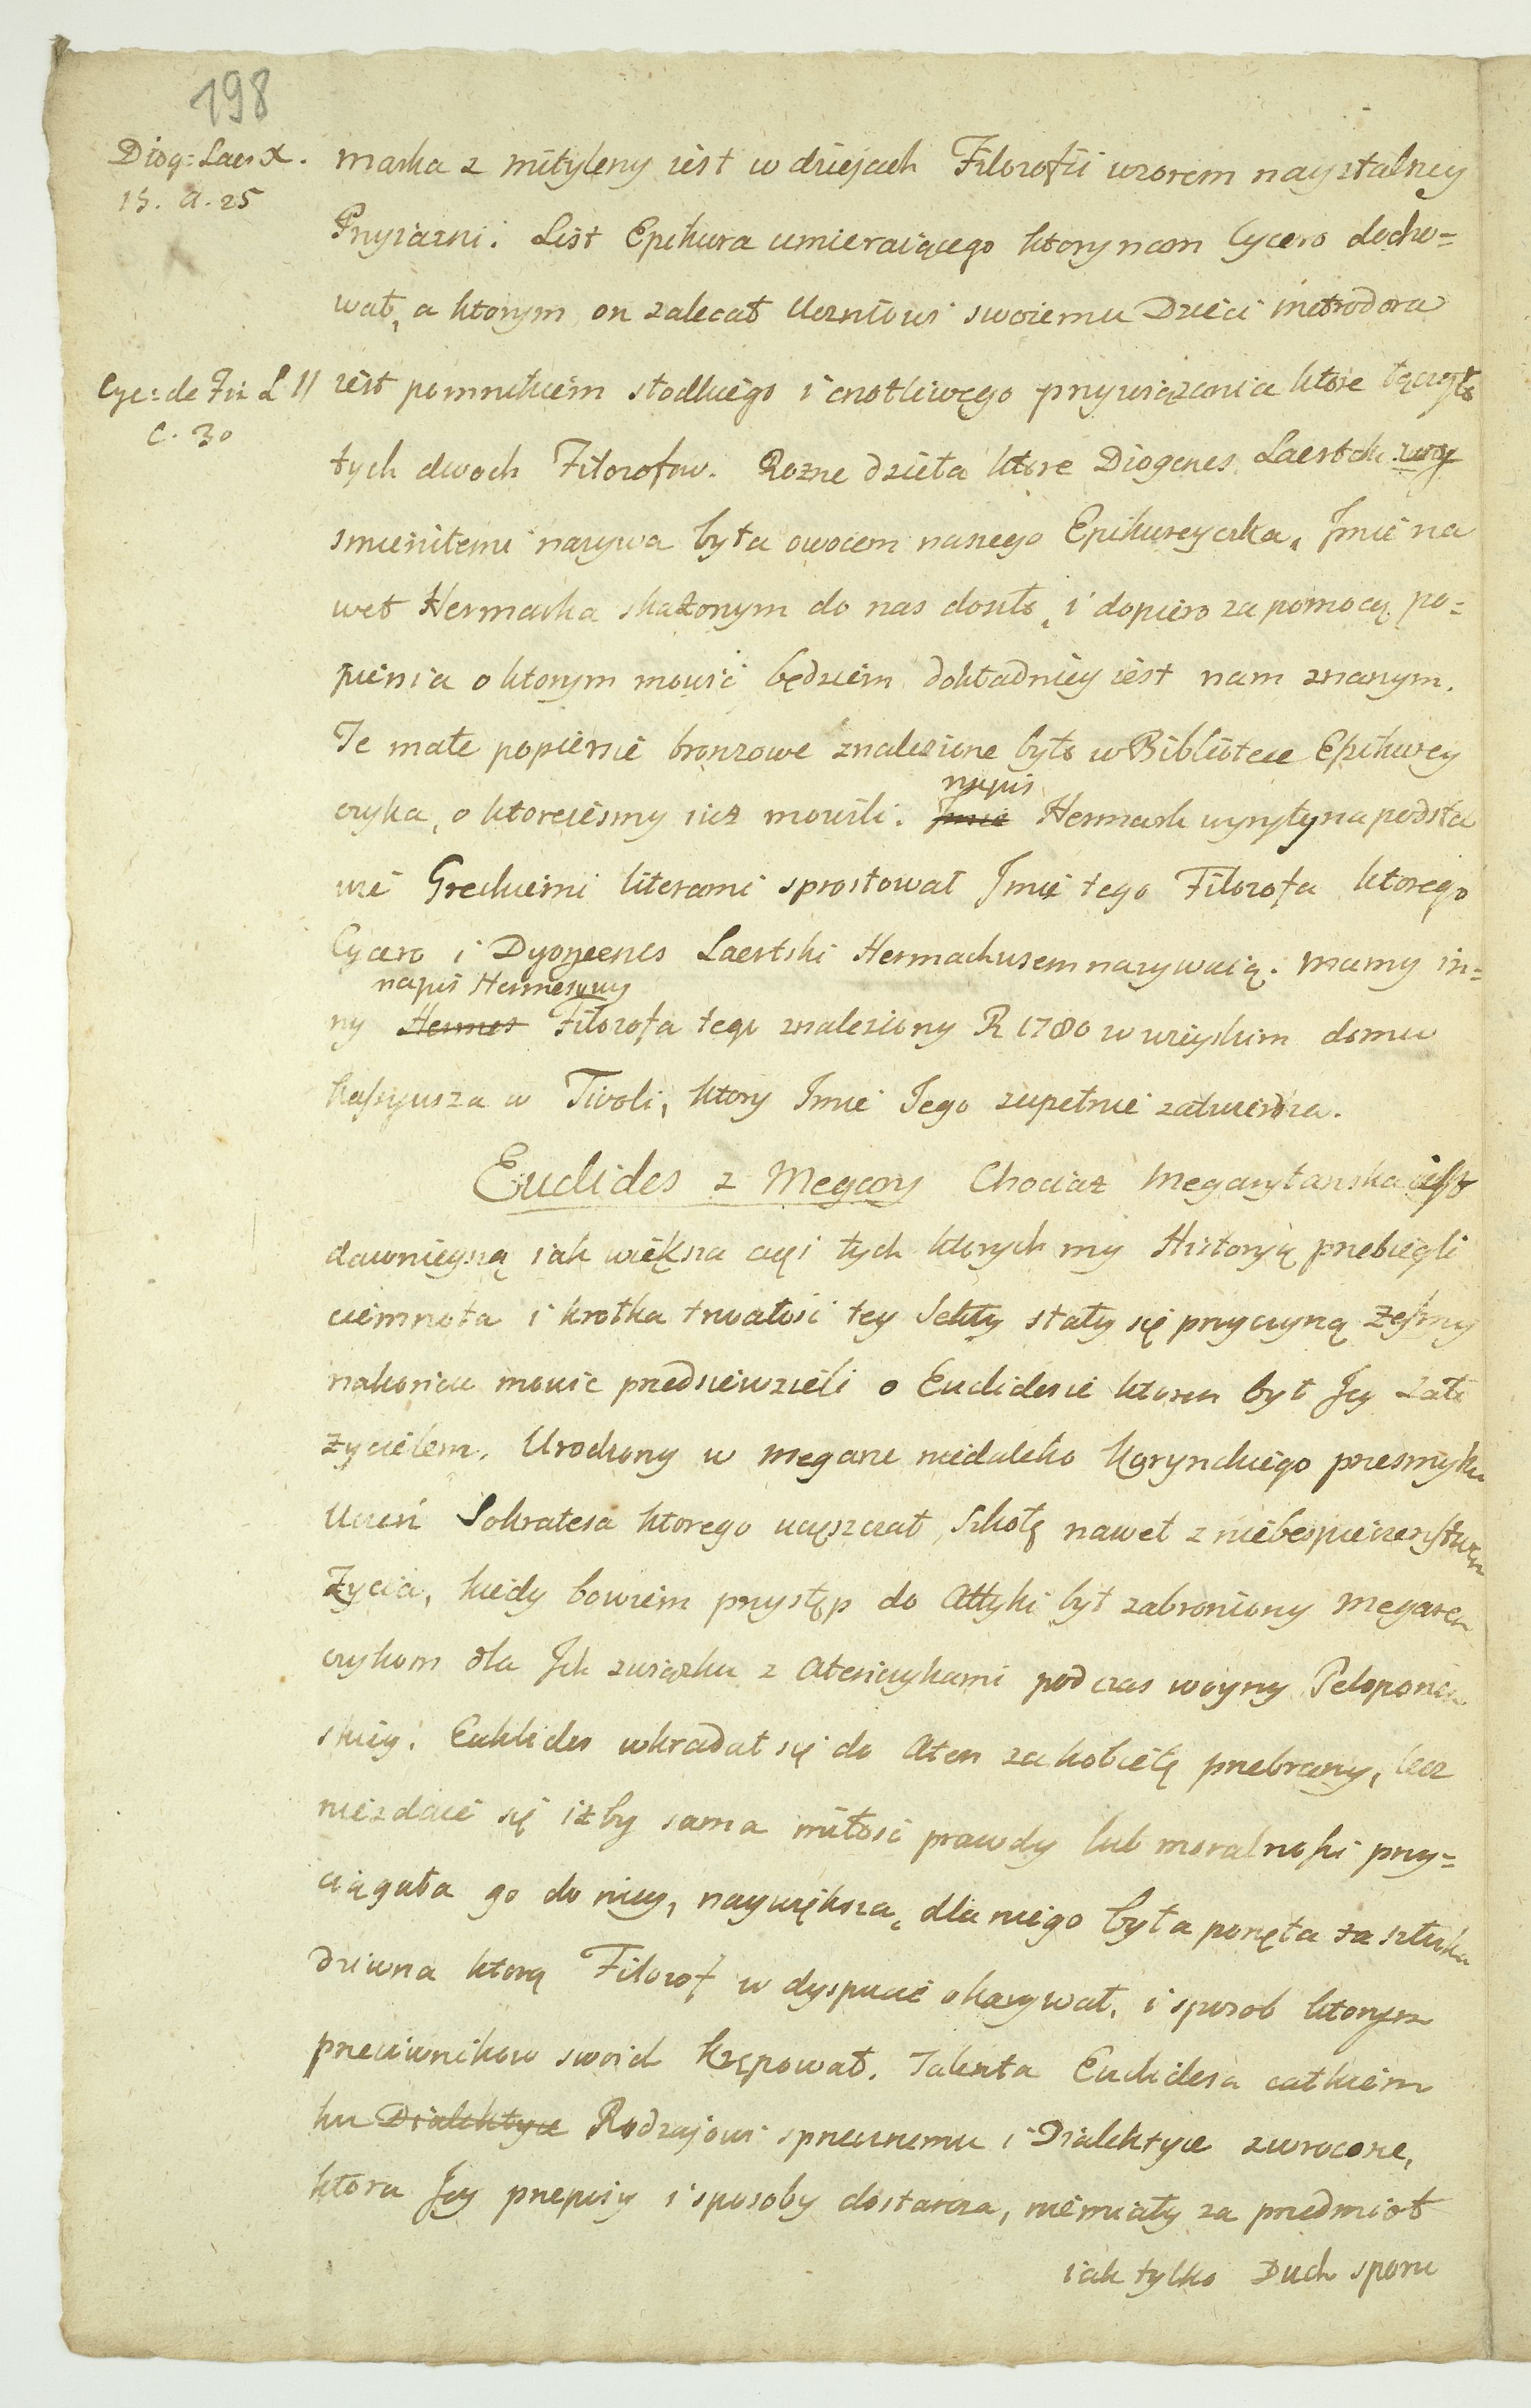 198
Diog: Laer X.
15. a. 25
marka z Mityleny iest w dziejach Filozofii wzorem naystalszey
Przyiazni. List Epikura umieraiącego ktory nam Cycero docho=
wał, a ktorym on zalecał Uczniowi swoiemu Dzieci Metrodora
Cyc: de Fin L II
C. 30
iest pomnikiem słodkiego i cnotliwego przywiązania ktore łączyło
tych dwoch Filozofow. Rozne dzieła ktore Diogenes Laertski
smienitemi nazywa była owocem naszego Epikureyczka, Imie na
wet Hermarka skażonym do nas doszło, i dopiero za pomocą po=
piersia o ktorym mowić będziem dokładniey iest nam znanym.
Te małe popiersie bronzowe znalezione było w Bibliotece Epikurey
czyka, o ktorcieśmy iuż mowili. Imie napis Hermark wyryty na podsta
wie Greckiemi literami sprostował Imie tego Filozofa ktorego
Cycero i Dyogeenes Laertski Hermachusem nazywaią. Mamy in=
ny Hermes napis Hermesowy Filozofa tego znaleziony R 1780 w wieyskim domu
Kassyusza w Tivoli, ktory Imie Jego zupełnie zatwierdza.
Euclides z Megary Chociaż Megarytanska iest
dawnieyszą iak większa część tych ktorych my Historyą przebiegli
ciemnota i krotka trwałość tey Sekty stały się przyczyną żeśmy
nakoncu mowic przedsiewzieli o Euclidesie ktoren był Jey zało
życielem. Urodzony w Megarze niedaleko Korynckiego przesmyku
Uczeń Sokratesa ktorego uczęszczał Szkołę nawet z niebespieczenstwem
Życia, kiedy bowiem przystęp do Attyki był zabroniony Megaren
czykom dla Jch związku z Atenczykami podczas woyny Peloponen
skiey. Euklides wkradał się do Aten za kobietę przebrany, lecz
niezdaie się iżby sama miłość prawdy lub moralności przy=
ciągała go do niey, naywiększa, dla niego była ponęta ta sztuka
dziwna ktorą Filozof w dyspucie okazywał, i sposob ktorym
przeciwnikow swoich krępował. Talenta Euclidesa całkiem
ku Dialektyce Rodzajowi sprzecznemu i Dialektyce zwrocone,
ktora Jey przepisy i sposoby dostarcza, niemiały za przedmiot
iak tylko Duch sporu